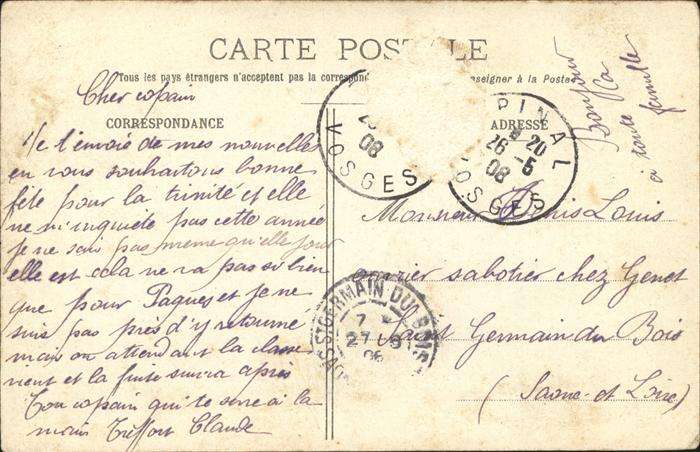 CARTE POSTALE
Tous les pays étrangers n'acceptent pas la correspond
enseigner à la Poste
Cher copain
CORRESPONDANCE
Je t'envois de mes nouvelles
en vous souhaitons bonne
fête pour la trinité et elle
ne m'inquiète pas cette année
je ne sais pas même quelle jour
elle est cela ne va pas si bien
que pour Paques et je ne
suis pas près d'y retourné
mais on attendant la classe
vient et la fuite suivra après
Ton copain qui te serre à la
main Treffort Claude
08
VOSGES
PINAL
20
26 -5
08
OSGES
ADRESSE
Bonjour
à toute
famille
Monsieur Denis Louis
Ouvrier sabotier chez Genet
Saint Germain du Bois
(Saone-et-Loire)
ST GERMAIN DU BOIS
7
27 -5
08